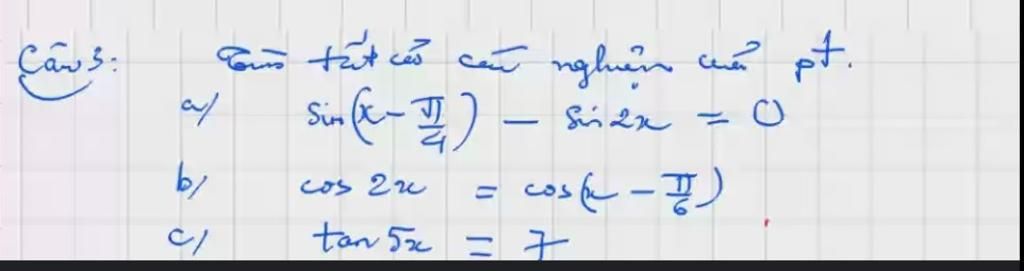 Câu 3: Tìm tất cả các nghiệm của pt.
a/ sin(x - π/4) - sin 2x = 0
b/ cos 2x = cos(x - π/6)
c/ tan 5x = 7